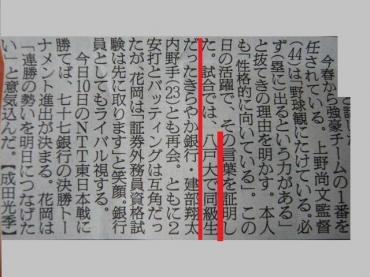 と話した。
今春から強豪チームの1番を
任されている。上野尚文監督
(44)は「野球観にたけている。必
ず(塁に)出るという力がある」
と抜てきの理由を明かす。本人
も「性格的に向いている」。この
日の活躍で、その言葉を証明し
た。試合では、八戸大で同級生
だったきらやか銀行・建部翔太
内野手(23)とも再会。ともに2
安打とバッティングは互角だっ
たが、花岡は「証券外務員資格試
験は先に取ります」と笑顔。銀行
員としてもライバル視する。
今日10日のNTT東日本戦に
勝てば、七十七銀行の決勝トー
ナメント進出が決まる。花岡は
「連勝の勢いを明日につなげた
い」と意気込んだ。【成田光季】